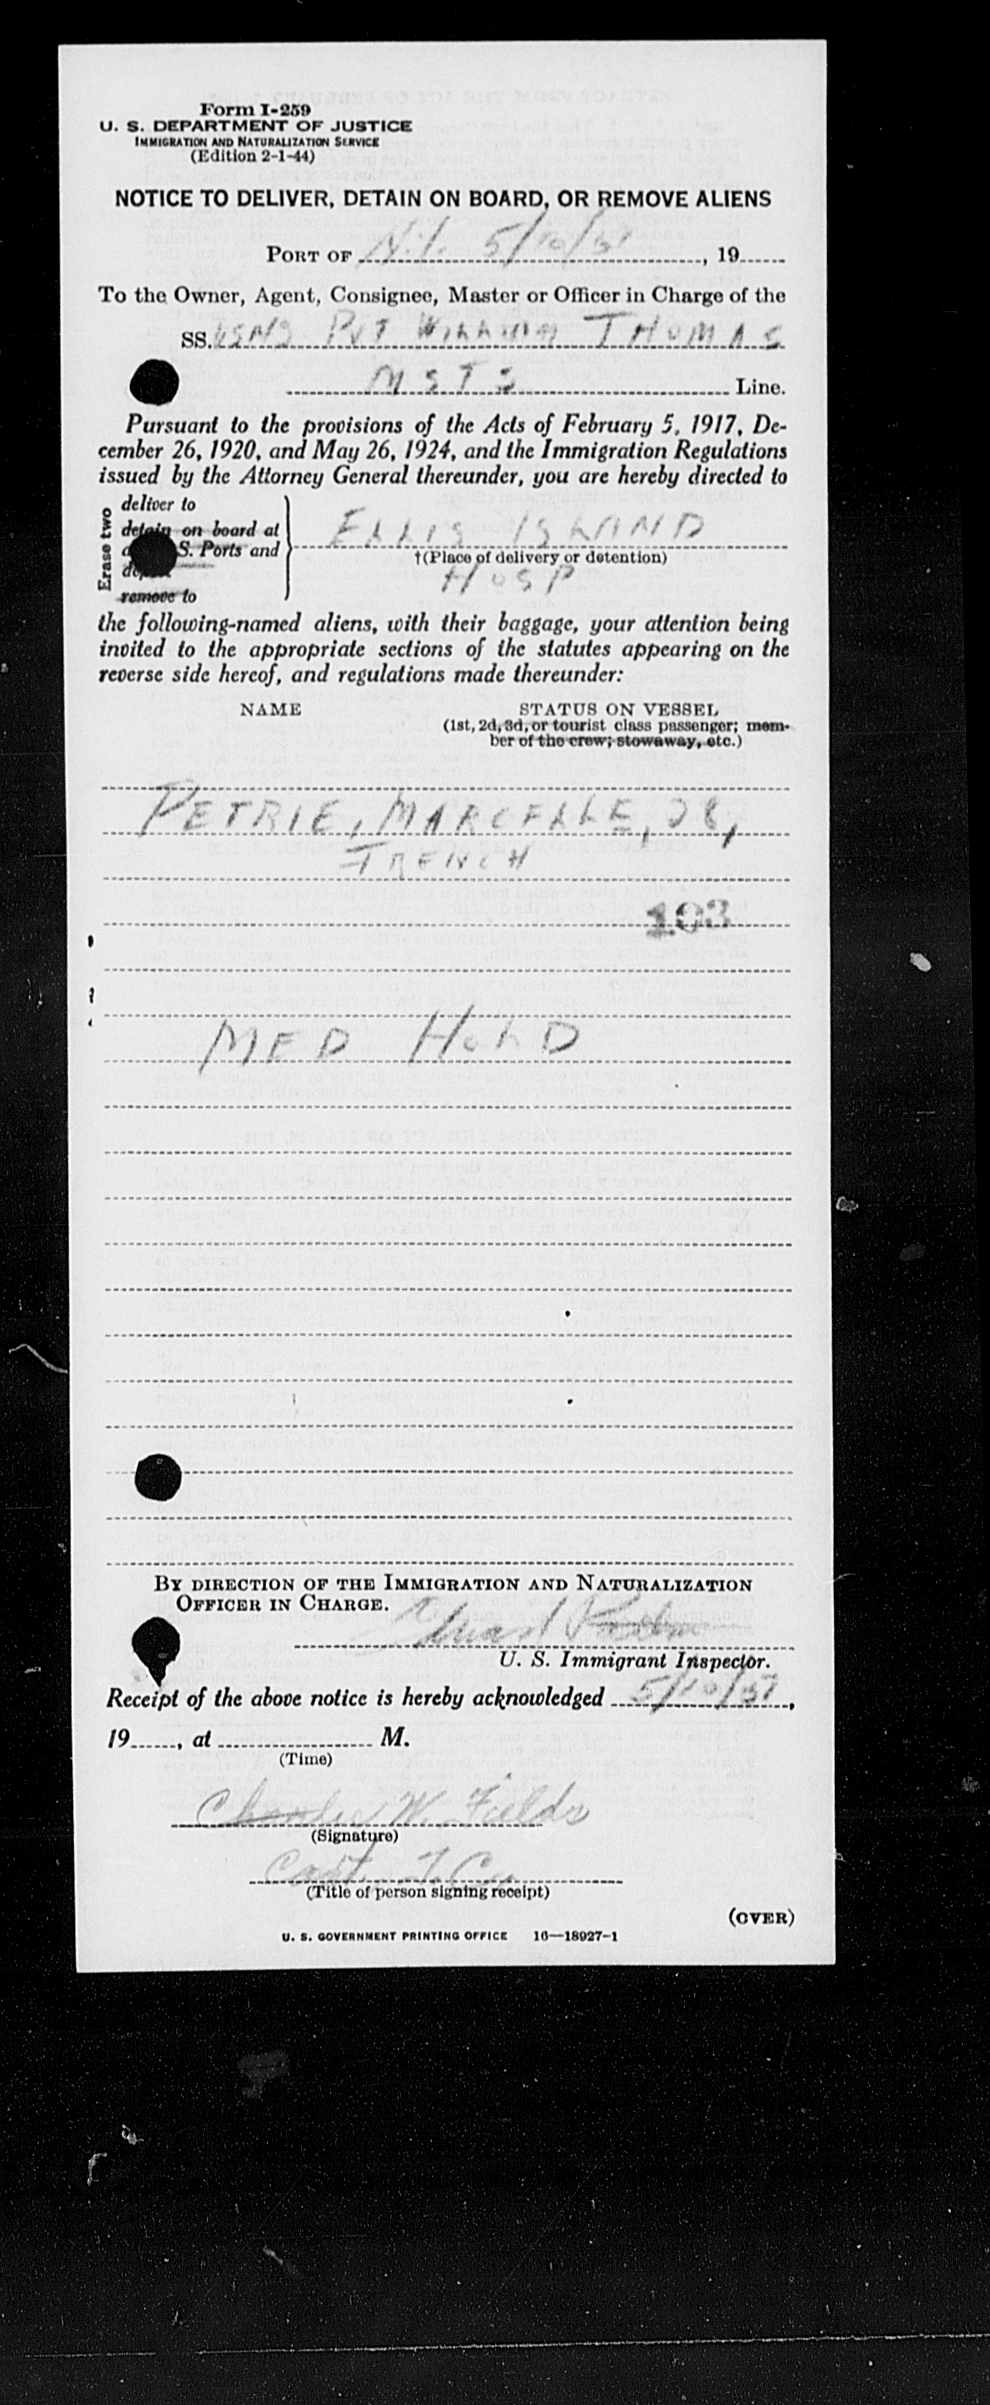 Form I-259
U. S. DEPARTMENT OF JUSTICE
IMMIGRATION AND NATURALIZATION SERVICE
(Edition 2-1-44)
NOTICE TO DELIVER, DETAIN ON BOARD, OR REMOVE ALIENS
PORT OF N.Y. 5/10/51, 19
To the Owner, Agent, Consignee, Master or Officer in Charge of the
SS. USNS PVT WILLIAM THOMAS
MSTS Line.
Pursuant to the provisions of the Acts of February 5, 1917, De-
cember 26, 1920, and May 26, 1924, and the Immigration Regulations
issued by the Attorney General thereunder, you are hereby directed to
Erase two
deliver to
detain on board at
S. Ports and
remove to
ELLIS ISLAND
†(Place of delivery or detention)
HOSP
the following-named aliens, with their baggage, your attention being
invited to the appropriate sections of the statutes appearing on the
reverse side hereof, and regulations made thereunder:
NAME
STATUS ON VESSEL
(1st, 2d, 3d, or tourist class passenger; mem-
ber of the crew; stowaway, etc.)
PETRIE, MARCELLE, 28,
FRENCH
193
MED HOLD
BY DIRECTION OF THE IMMIGRATION AND NATURALIZATION
OFFICER IN CHARGE.
U. S. Immigrant Inspector.
Receipt of the above notice is hereby acknowledged 5/10/51,
19, at M.
(Time)
Charlie W. Fields
(Signature)
Capt. T.C.
(Title of person signing receipt)
(OVER)
U. S. GOVERNMENT PRINTING OFFICE 16—18927-1